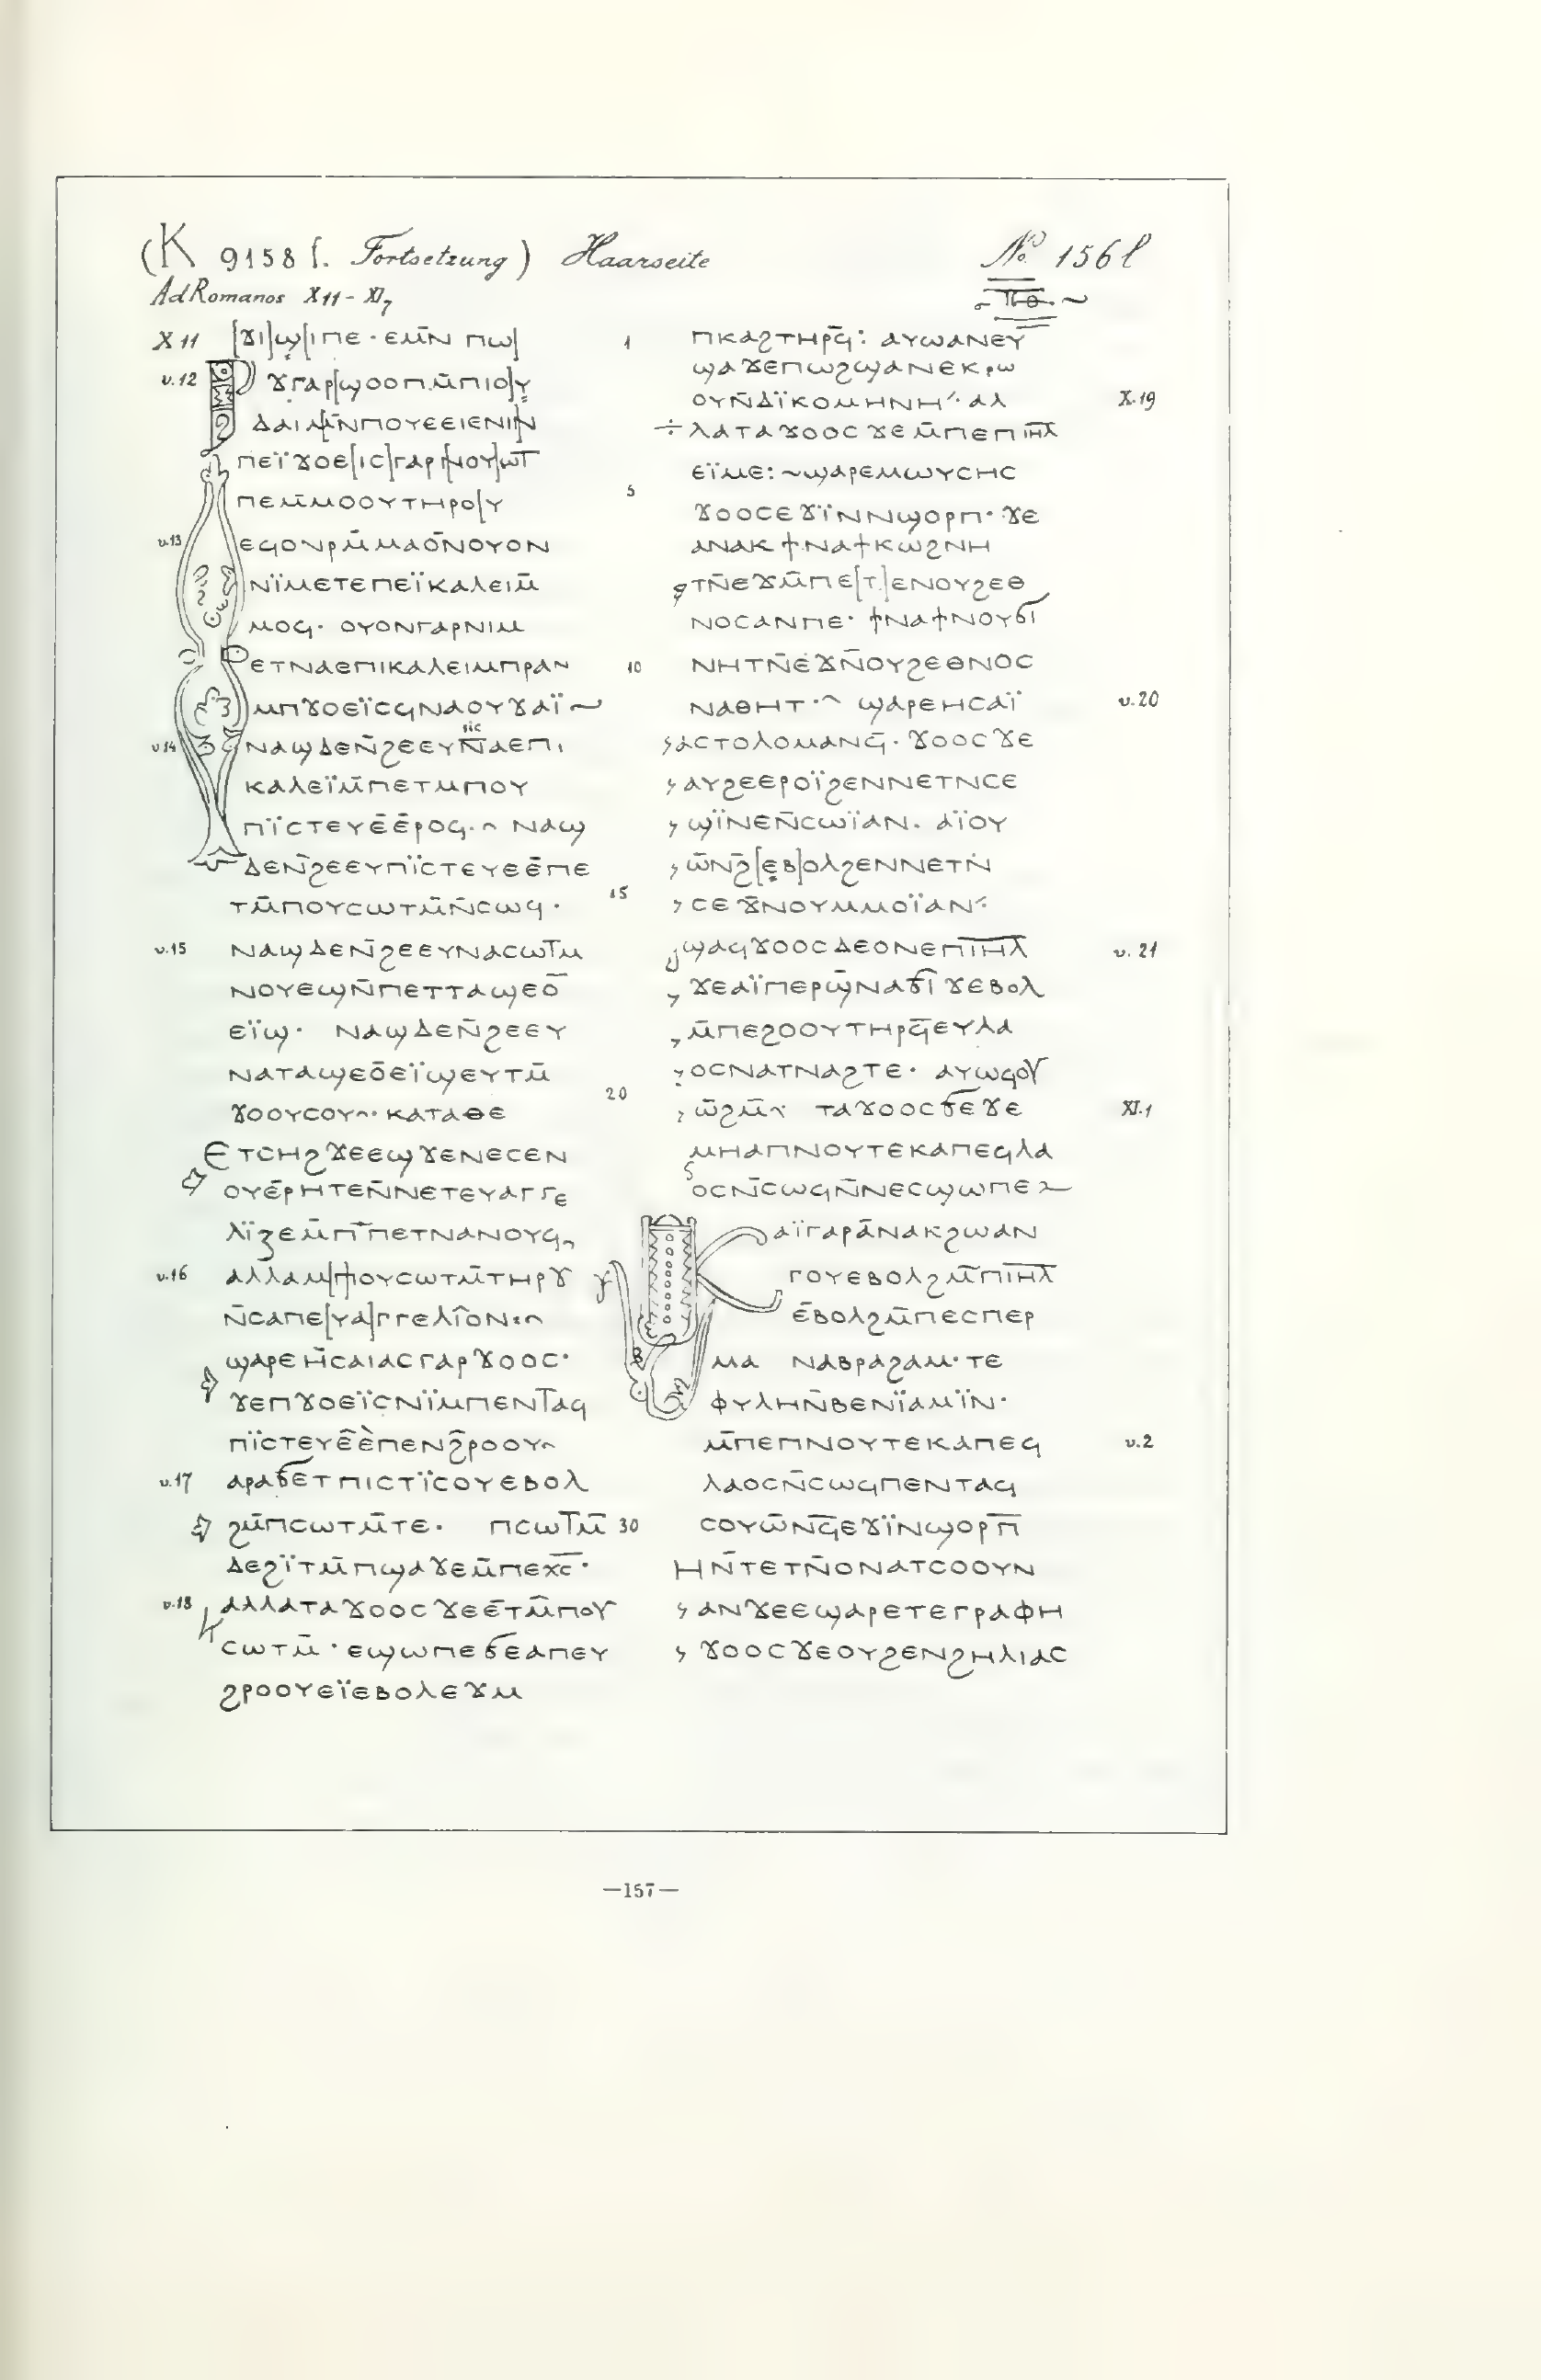 (K 9158 f. Fortsetzung) Haarseite
№ 156 l
Ad Romanos X 11 - XI 7
ⲡⲑ
X 11 [ϫⲓ]ϣ[ⲓⲡⲉ · ⲉⲙ̄ⲛ ⲡⲱ]
v.12 ϫⲅⲁⲣ[ϣⲟⲟⲡ ⲙ̄ⲡⲓⲟ]ⲩ
ⲇⲁⲓ ⲙⲛ̄ⲡⲟⲩⲉⲉⲓⲉⲛⲓⲛ
ⲡⲉⲓ̈ϫⲟⲉ[ⲓⲥ]ⲅⲁⲣ[ⲛⲟⲩ]ⲱⲧ
ⲡⲉⲙ̄ⲙⲟⲟⲩⲧⲏⲣⲟ[ⲩ
v.13 ⲉϥⲟⲛⲣⲙ̄ⲙⲁⲟ̄ⲛⲟⲩⲟⲛ
ⲛⲓ̈ⲙⲉⲧⲉⲡⲉⲓ̈ⲕⲁⲗⲉⲓⲙ̄
ⲙⲟϥ · ⲟⲩⲟⲛⲅⲁⲣⲛⲓⲙ
ⲉⲧⲛⲁⲉⲡⲓⲕⲁⲗⲉⲓⲙⲡⲣⲁⲛ
ⲙⲡϫⲟⲉⲓ̈ⲥϥⲛⲁⲟⲩϫⲁⲓ̈ ~
sic
v.14 ⲛⲁϣⲇⲉⲛ̄ϩⲉⲉⲩⲛ̄ⲁⲉⲡⲓ
ⲕⲁⲗⲉⲓ̈ⲙ̄ⲡⲉⲧⲙⲡⲟⲩ
ⲡⲓ̈ⲥⲧⲉⲩⲉ̄ⲉ̄ⲣⲟϥ · ⲛⲁϣ
ⲇⲉⲛ̄ϩⲉⲉⲩⲡⲓ̈ⲥⲧⲉⲩⲉⲉ̄ⲡⲉ
ⲧⲙ̄ⲡⲟⲩⲥⲱⲧⲙ̄ⲛ̄ⲥⲱϥ ·
v.15 ⲛⲁϣⲇⲉⲛ̄ϩⲉⲉⲩⲛⲁⲥⲱⲧ̄ⲙ
ⲛⲟⲩⲉϣⲛ̄ⲡⲉⲧⲧⲁϣⲉⲟ̄
ⲉⲓ̈ϣ · ⲛⲁϣⲇⲉⲛ̄ϩⲉⲉⲩ
ⲛⲁⲧⲁϣⲉⲟ̄ⲉⲓ̈ϣⲉⲩⲧⲙ̄
ϫⲟⲟⲩⲥⲟⲩ · ⲕⲁⲧⲁⲑⲉ
ⲉⲧⲥⲏϩϫⲉⲉϣϫⲉⲛⲉⲥⲉⲛ
ⲟⲩⲉ̄ⲣⲏⲧⲉⲛ̄ⲛⲉⲧⲉⲩⲁⲅⲅⲉ
ⲗⲓ̈ⲍⲉⲙ̄ⲡ̄ⲡⲉⲧⲛⲁⲛⲟⲩϥ
v.16 ⲁⲗⲗⲁⲙ[ⲡ]ⲟⲩⲥⲱⲧⲙ̄ⲧⲏⲣⲟⲩ
ⲛ̄ⲥⲁⲡⲉ[ⲩⲁ]ⲅⲅⲉⲗⲓⲟⲛ :
ϣⲁⲣⲉⲏ̄ⲥⲁⲓⲁⲥⲅⲁⲣϫⲟⲟⲥ ·
ϫⲉⲡϫⲟⲉⲓ̈ⲥⲛⲓ̈ⲙⲡⲉⲛⲧ̄ⲁϥ
ⲡⲓ̈ⲥⲧⲉⲩⲉ̂ⲉ̀ⲡⲉⲛϩ̄ⲣⲟⲟⲩ
v.17 ⲁⲣⲁϭⲉⲧⲡⲓⲥⲧⲓ̈ⲥⲟⲩⲉⲃⲟⲗ
ϩⲙ̄ⲡⲥⲱⲧⲙ̄ⲧⲉ · ⲡⲥⲱⲧ̄ⲙ̄
ⲇⲉϩⲓ̈ⲧⲙ̄ⲡϣⲁϫⲉⲙ̄ⲡⲉⲭ̄ⲥ̄ ·
v.18 ⲁⲗⲗⲁⲧⲁϫⲟⲟⲥϫⲉⲉ̄ⲧⲙ̄ⲡⲟⲩ
ⲥⲱⲧⲙ̄ · ⲉϣⲱⲡⲉϭⲉⲁⲡⲉⲩ
ϩⲣⲟⲟⲩⲉⲓ̈ⲉⲃⲟⲗⲉϫⲙ
1 ⲡⲕⲁϩⲧⲏⲣϥ̄ : ⲁⲩⲱⲁⲛⲉⲩ
ϣⲁϫⲉⲡⲱϩϣⲁⲛⲉⲕⲣⲱ
ⲟⲩⲛ̄ⲇⲓ̈ⲕⲟⲙⲏⲛⲏ · ⲁⲗ X.19
÷ ⲗⲁⲧⲁϫⲟⲟⲥϫⲉⲙ̄ⲡⲉⲡⲓ̅ⲏ̅ⲗ̅
5 ⲉⲓ̈ⲙⲉ : ~ ϣⲁⲣⲉⲙⲱⲩⲥⲏⲥ
ϫⲟⲟⲥⲉϫⲓ̈ⲛⲛϣⲟⲣⲡ · ϫⲉ
ⲁⲛⲁⲕϯⲛⲁϯⲕⲱϩⲛⲏ
ⲧⲛ̄ⲉϫⲙ̄ⲡⲉ[ⲧ]ⲉⲛⲟⲩϩⲉⲑ
ⲛⲟⲥⲁⲛⲡⲉ · ϯⲛⲁϯⲛⲟⲩϭⲥ̄
10 ⲛⲏⲧⲛ̄ⲉϫⲛ̄ⲟⲩϩⲉⲑⲛⲟⲥ
ⲛⲁⲑⲏⲧ · ϣⲁⲣⲉⲏⲥⲁⲓ̈ v.20
ⲁⲥⲧⲟⲗⲟⲙⲁⲛϥ̄ · ϫⲟⲟⲥϫⲉ
ⲁⲩϩⲉⲉⲣⲟⲓ̈ϩⲉⲛⲛⲉⲧⲛⲥⲉ
ϣⲓ̈ⲛⲉⲛ̄ⲥⲱⲓ̈ⲁⲛ · ⲁⲓ̈ⲟⲩ
ⲱ̄ⲛϩ̄[ⲉⲃ]ⲟⲗϩⲉⲛⲛⲉⲧⲛ̇
15 ⲥⲉϫ̄ⲛⲟⲩⲙⲙⲟⲓ̈ⲁⲛ
ϣⲁϥϫⲟⲟⲥⲇⲉⲟⲛⲉⲡⲓ̅ⲏ̅ⲗ̅ v.21
ϫⲉⲁⲓ̈ⲡⲉⲣϣ̄ⲛⲁϭⲓϫⲉⲃⲟⲗ
ⲙ̄ⲡⲉϩⲟⲟⲩⲧⲏⲣϥ̄ⲉⲩⲗⲁ
ⲟⲥⲛⲁⲧⲛⲁϩⲧⲉ · ⲁⲩⲱϥⲟⲩ
20 ⲱ̄ϩⲙ̄ · ⲧⲁϫⲟⲟⲥϭⲉϫⲉ XI.1
ⲙⲏⲁⲡⲛⲟⲩⲧⲉⲕⲁⲡⲉϥⲗⲁ
ⲟⲥⲛ̄ⲥⲱϥⲛ̄ⲛⲉⲥϣⲱⲡⲉ
ⲕⲁⲓ̈ⲅⲁⲣⲁ̄ⲛⲁⲕϩⲱⲁⲛ
ⲅⲟⲩⲉⲃⲟⲗϩⲙ̄ⲡⲓ̅ⲏ̅ⲗ̅
ⲉ̄ⲃⲟⲗϩⲙ̄ⲡⲉⲥⲡⲉⲣ
ⲙⲁ ⲛⲁⲃⲣⲁϩⲁⲙ · ⲧⲉ
ⲫⲩⲗⲏⲛ̄ⲃⲉⲛⲓ̈ⲁⲙⲓ̈ⲛ ·
ⲙ̄ⲡⲉⲡⲛⲟⲩⲧⲉⲕⲁⲡⲉϥ v.2
ⲗⲁⲟⲥⲛ̄ⲥⲱϥⲡⲉⲛⲧⲁϥ
30 ⲥⲟⲩⲱ̄ⲛϥ̄ⲉϫⲓ̈ⲛϣⲟⲣⲡ̄
ⲏⲛ̄ⲧⲉⲧⲛ̄ⲟⲛⲁⲧⲥⲟⲟⲩⲛ
ⲁⲛϫⲉⲉϣⲁⲣⲉⲧⲉⲅⲣⲁⲫⲏ
ϫⲟⲟⲥϫⲉⲟⲩϩⲉⲛϩⲏⲗⲓⲁⲥ
—157—